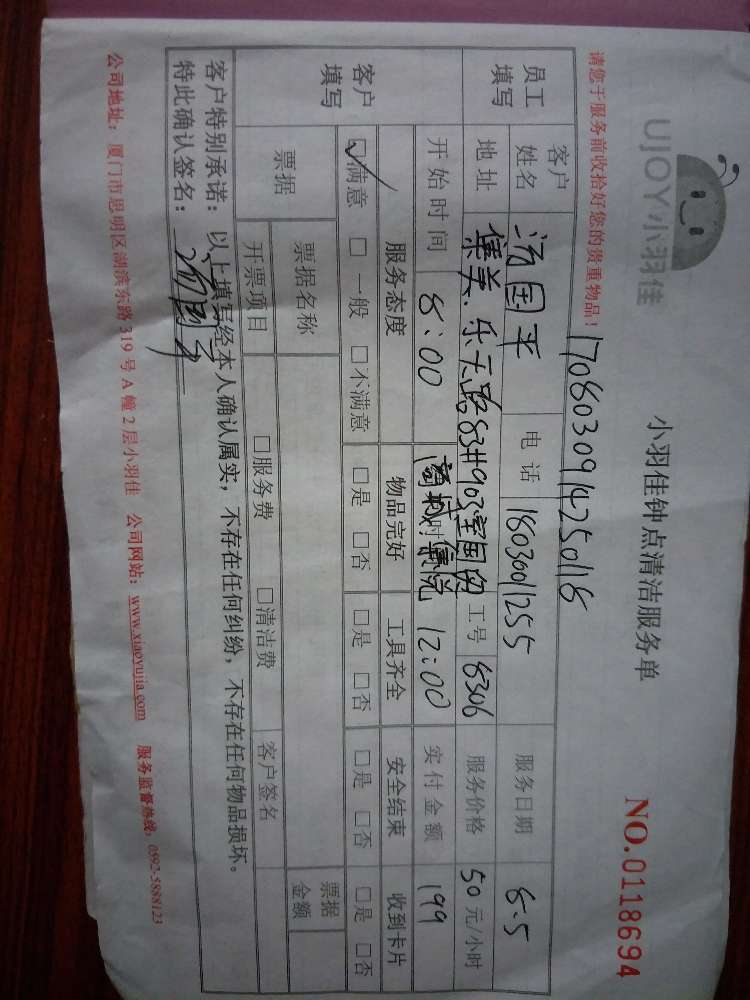 UJOY小羽佳
小羽佳钟点清洁服务单
NO.0118694
请您于服务前收拾好您的贵重物品！
1708030914250118
员工填写 客户姓名 汤国平 电话 18030011255 服务日期 8.5
地址 集美、乐天路83#903室国贸商城 工号 8306 服务价格 50元/小时
开始时间 8:00 时间 12:00 实付金额 199
客户填写 服务态度 物品完好 工具齐全 安全结束 收到卡片
☑满意 □一般 □不满意 □是 □否 □是 □否 □是 □否 □是 □否
票据 票据名称 票据金额
开票项目 □服务费 □清洁费 客户签名
客户特别承诺：以上填写经本人确认属实，不存在任何纠纷，不存在任何物品损坏。
特此确认签名：
公司地址：厦门市思明区湖滨东路319号A幢2层小羽佳 公司网站：www.xiaoyujia.com 服务监督热线：0592-5888123